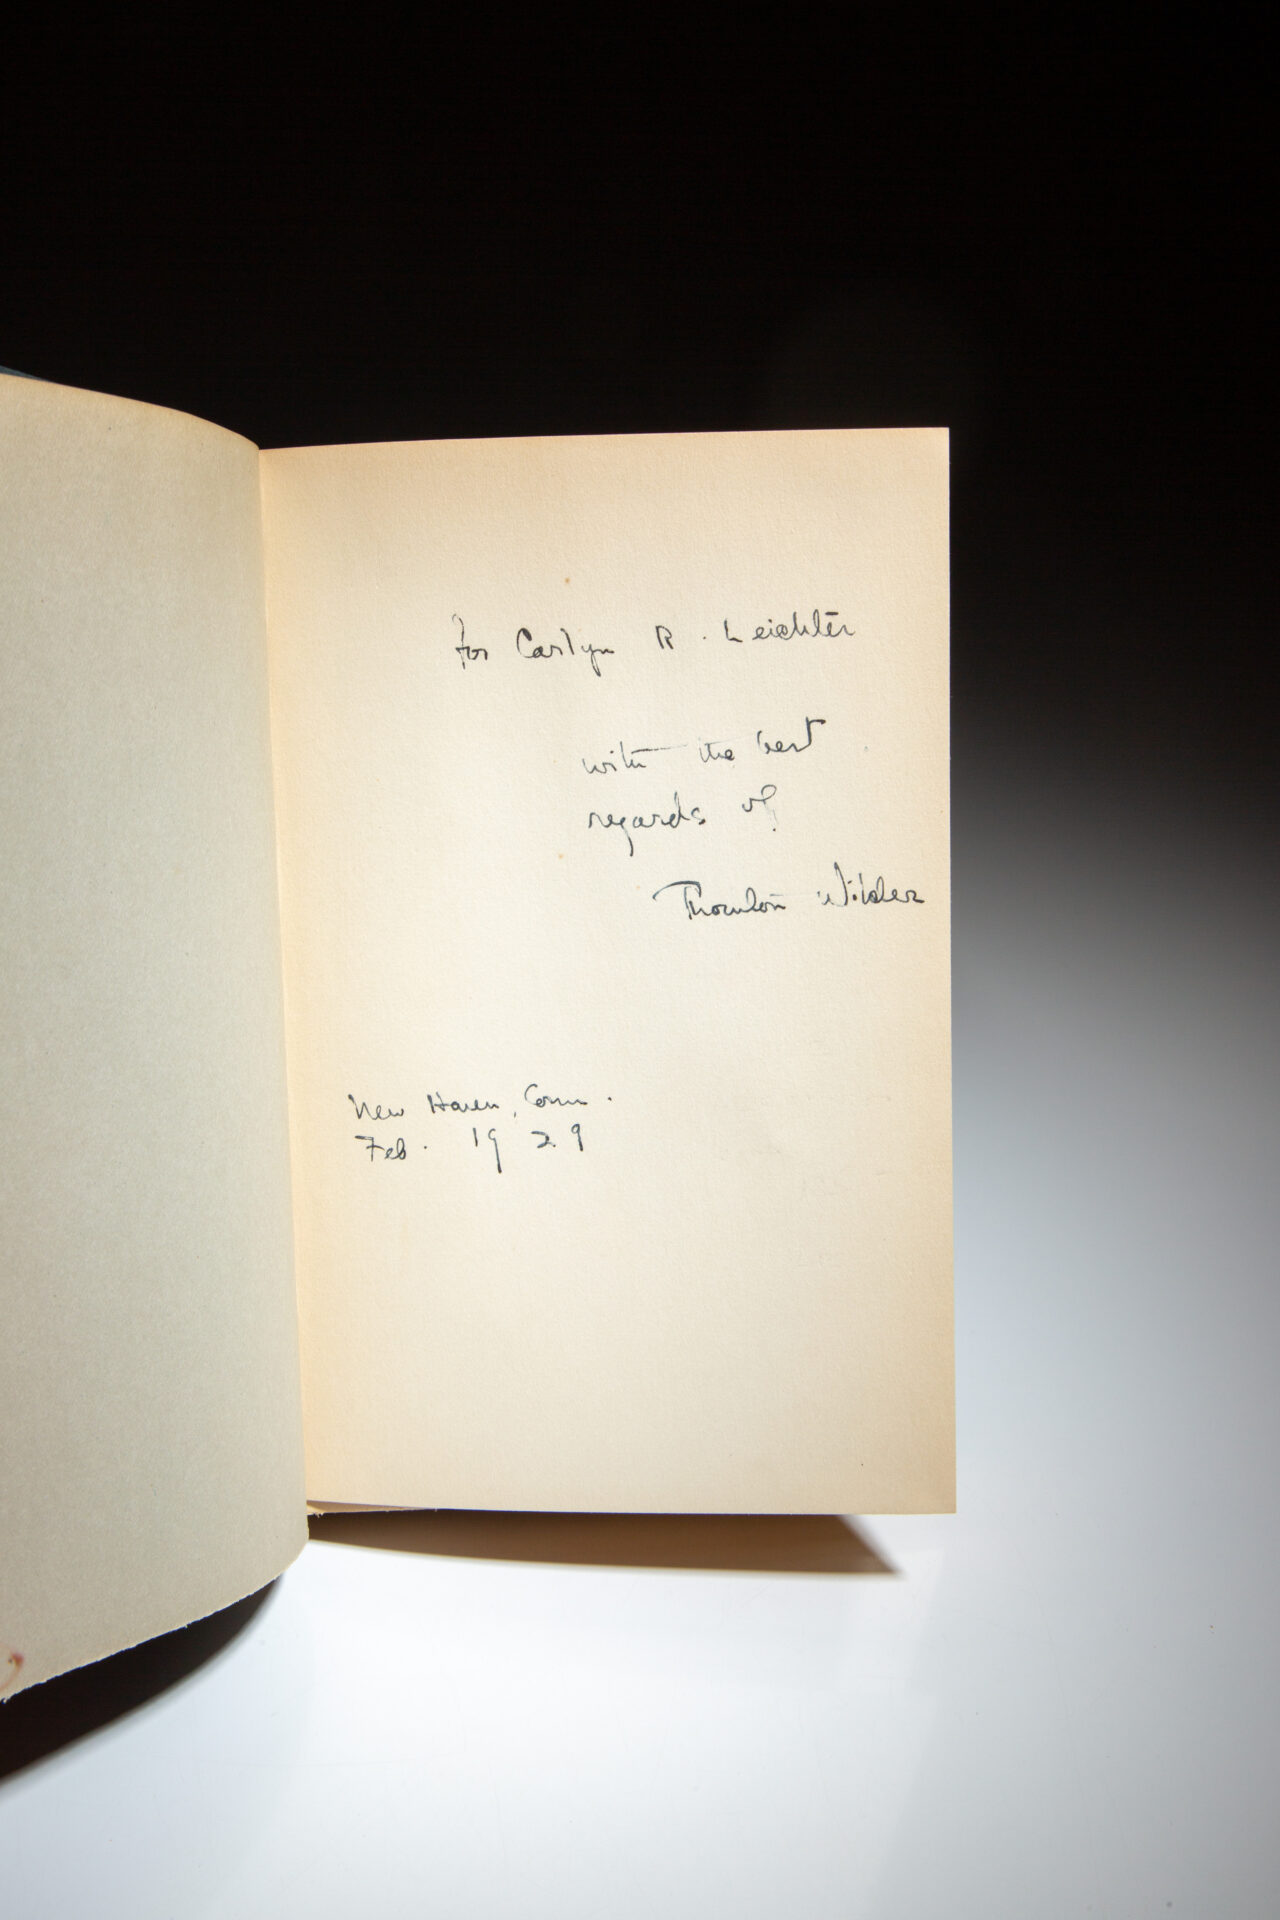 for Carlyn R. Leichter
with the best
regards of
Thornton Wilder
New Haven, Conn.
Feb. 1929